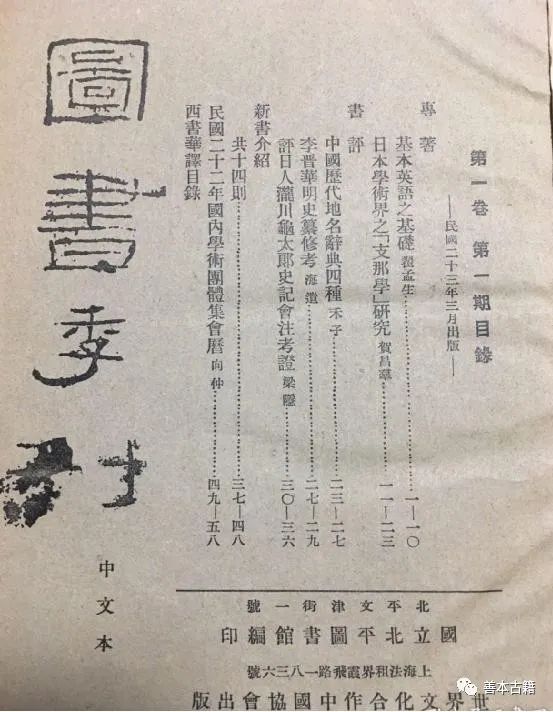 第一卷 第一期目錄
——民國二十三年三月出版——
專著
基本英語之基礎 翟孟生……………一—一〇
日本學術界之「支那學」研究 賀昌羣……………一一—二三
書評
中國歷代地名辭典四種 禾子……………二三—二七
李晋華明史纂修考 海遺……………二七—二九
評日人瀧川龜太郎史記會注考證 梁……………三〇—三六
新書介紹
共十四則……………三七—四八
民國二十二年國內學術團體集會曆 向仲……………四九—五八
西書華譯目錄
圖書季刊
中文本
北平文津街一號
國立北平圖書館編印
上海法租界霞飛路一八三六號
世界文化合作中國協會出版
善本古籍